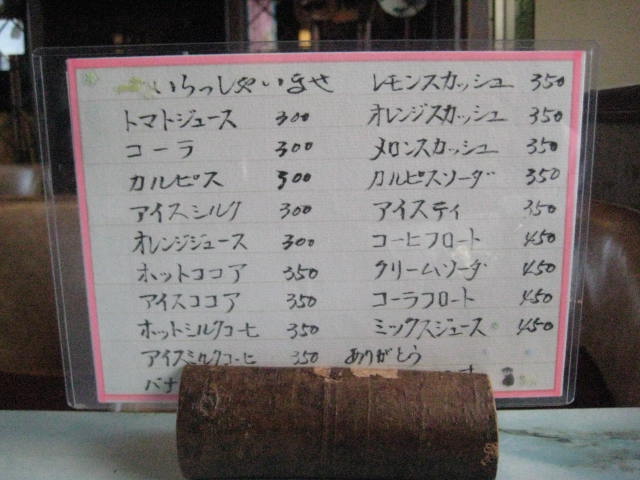 いらっしゃいませ
トマトジュース 300
コーラ 300
カルピス 300
アイスミルク 300
オレンジジュース 300
ホットココア 350
アイスココア 350
ホットミルクコーヒ 350
アイスミルクコーヒ 350
バナ
レモンスカッシュ 350
オレンジスカッシュ 350
メロンスカッシュ 350
カルピスソーダ 350
アイスティ 350
コーヒフロート 450
クリームソーダ 450
コーラフロート 450
ミックスジュース 450
ありがとう